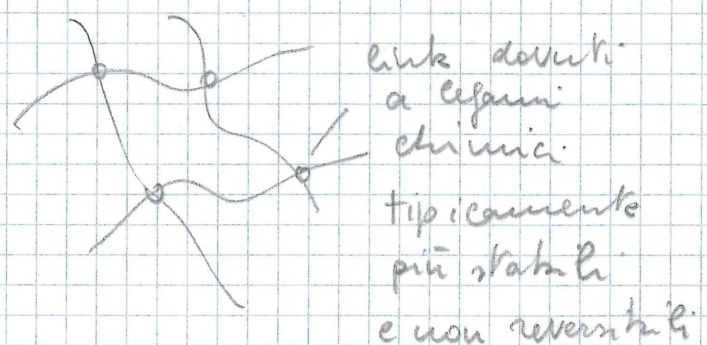 link dovuti
a legami
chimici
tipicamente
più stabili
e non reversibili